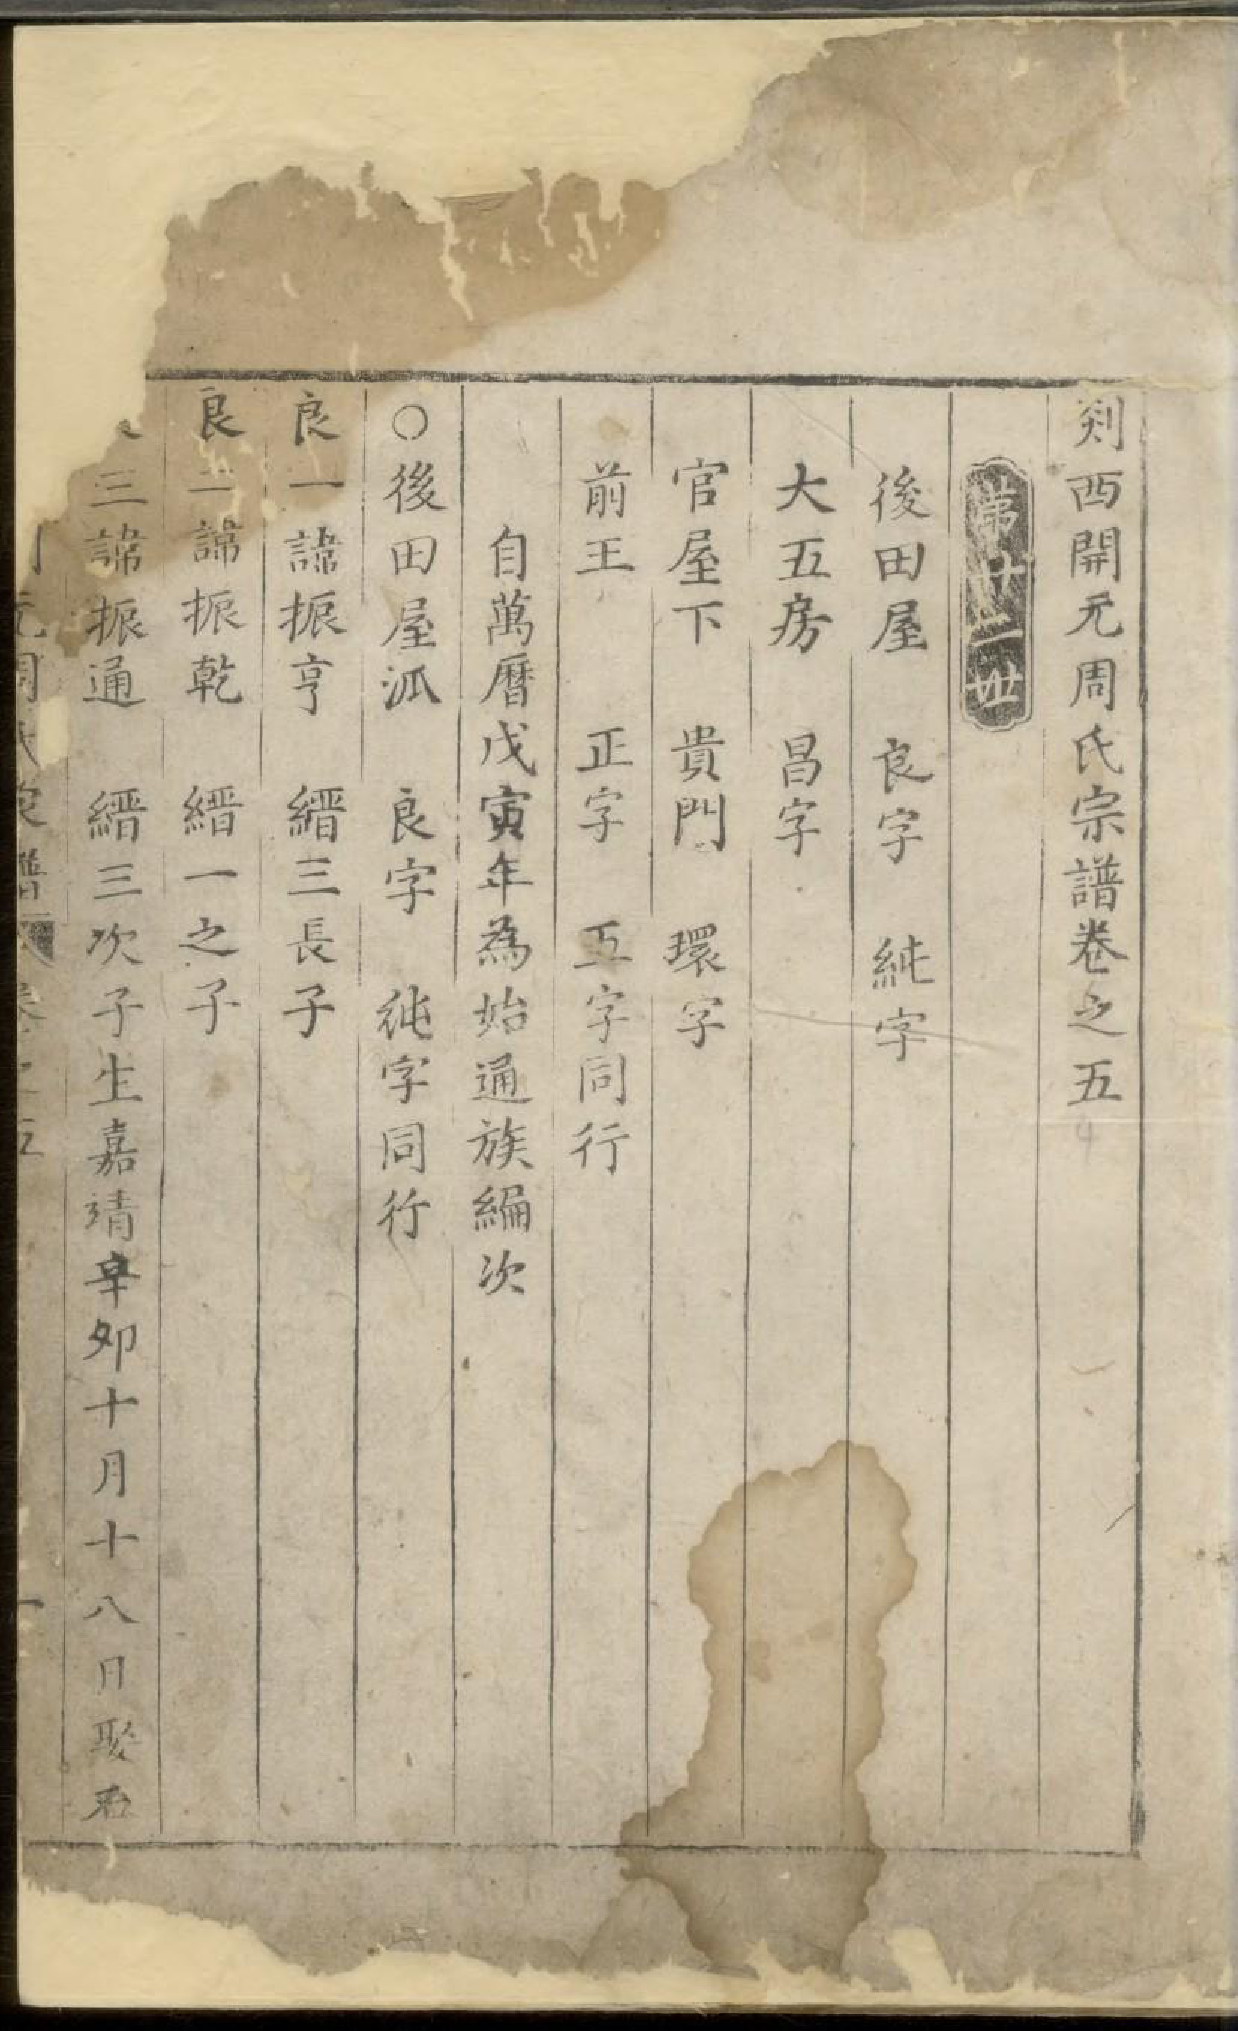 剡西開元周氏宗譜卷之五
第廿一世
後田屋 良字 純字
大五房 昌字
官屋下 貴門 環字
前王 正字 五字同行
自萬曆戊寅年為始通族編次
○後田屋派 良字 純字同行
良一諱振亨 縉三長子
良二諱振乾 縉一之子
三諱振通 縉三次子生嘉靖辛卯十月十八日娶石
元周氏宗譜 卷之五 一